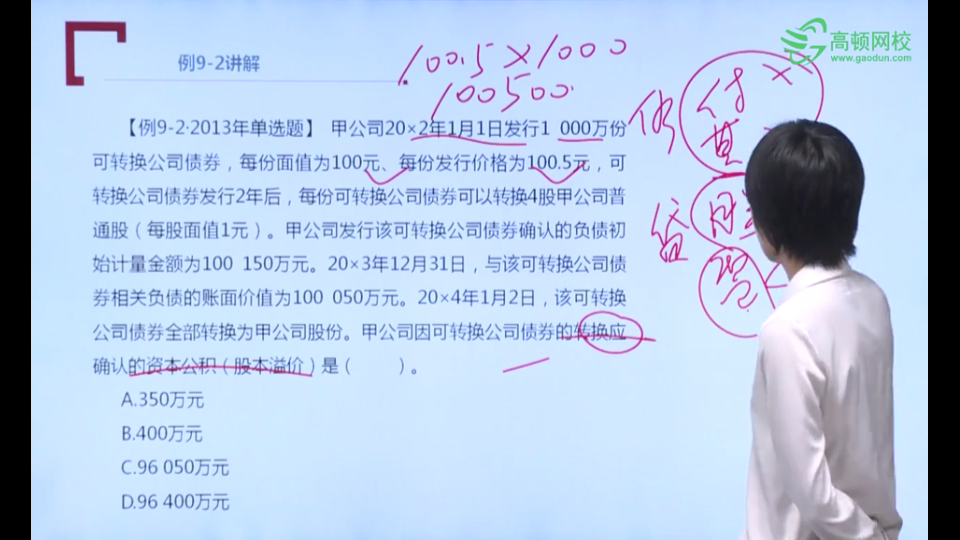 高顿网校
www.gaodun.com
例9-2讲解
100.5×1000
100500.
【例9-2·2013年单选题】 甲公司20×2年1月1日发行1 000万份
可转换公司债券，每份面值为100元、每份发行价格为100.5元，可
转换公司债券发行2年后，每份可转换公司债券可以转换4股甲公司普
通股（每股面值1元）。甲公司发行该可转换公司债券确认的负债初
始计量金额为100 150万元。20×3年12月31日，与该可转换公司债
券相关负债的账面价值为100 050万元。20×4年1月2日，该可转换
公司债券全部转换为甲公司股份。甲公司因可转换公司债券的转换应
确认的资本公积（股本溢价）是（ ）。
A.350万元
B.400万元
C.96 050万元
D.96 400万元